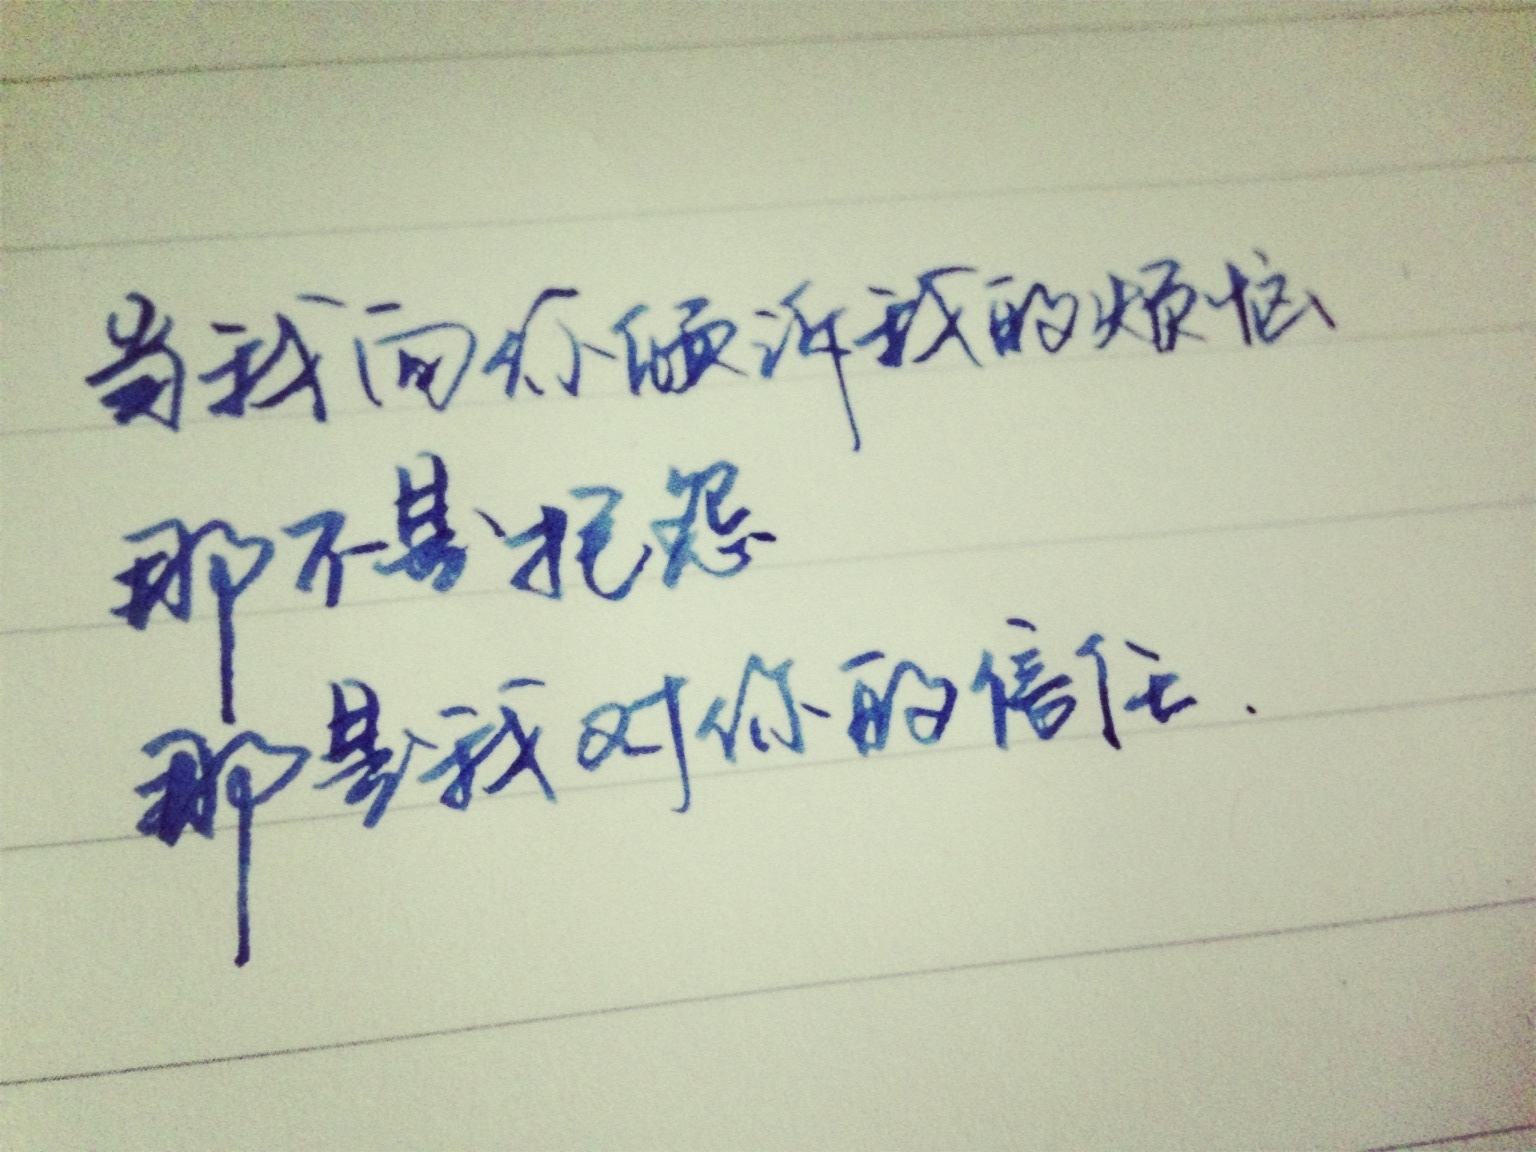 当我向你倾诉我的烦恼
那不是抱怨
那是我对你的信任.